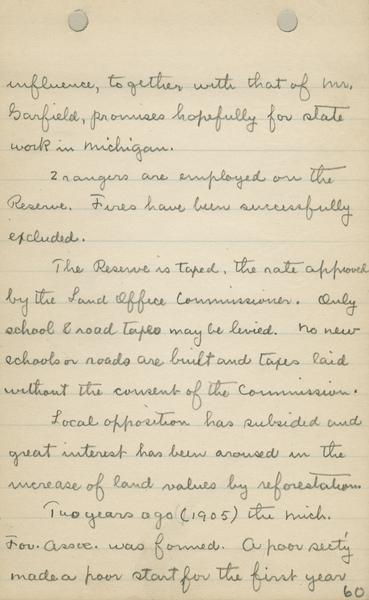 influence, together with that of Mr.
Garfield, promises hopefully for state
work in Michigan.
2 rangers are employed on the
Reserve. Fires have been successfully
excluded.
The Reserve is taxed, the rate approved
by the Land Office Commissioner. Only
school & road taxes may be levied. No new
schools or roads are built and taxes laid
without the consent of the Commission.
Local opposition has subsided and
great interest has been aroused in the
increase of land values by reforestation.
Two years ago (1905) the Mich.
For. Assoc. was formed. A poor sect'y
made a poor start for the first year
60